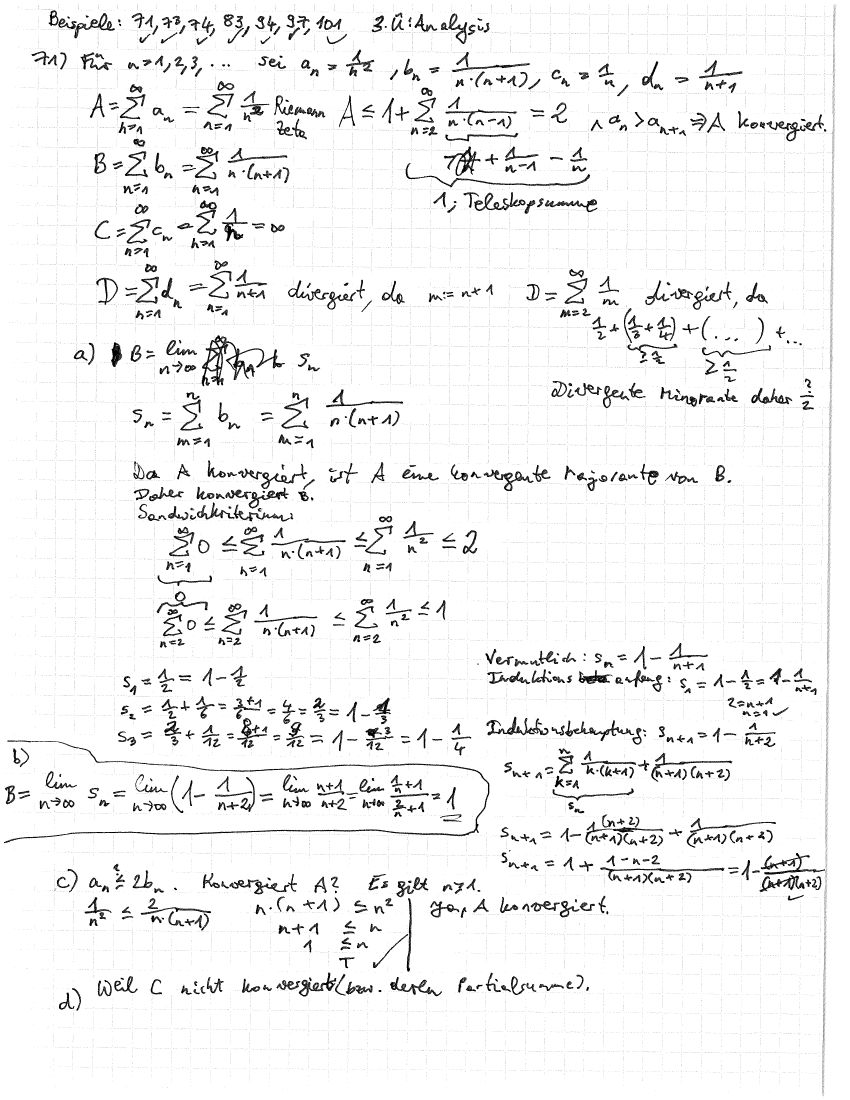 Beispiele: 71, 73, 74, 83, 94, 97, 101 3. Ü: Analysis
71) Für n=1,2,3,... sei a_n = 1/n², b_n = 1/(n·(n+1)), c_n = 1/n, d_n = 1/(n+1)
A = ∑_{n=1}^∞ a_n = ∑_{n=1}^∞ 1/n² Riemann Zeta A ≤ 1 + ∑_{n=2}^∞ 1/(n·(n-1)) = 2 ∧ a_n > a_{n+1} ⇒ A konvergiert.
+ 1/(n-1) - 1/n
1, Teleskopsumme
B = ∑_{n=1}^∞ b_n = ∑_{n=1}^∞ 1/(n·(n+1))
C = ∑_{n=1}^∞ c_n = ∑_{n=1}^∞ 1/n = ∞
D = ∑_{n=1}^∞ d_n = ∑_{n=1}^∞ 1/(n+1) divergiert, da m := n+1 D = ∑_{m=2}^∞ 1/m divergiert, da
1/2 + (1/3 + 1/4) + (...) + ...
≥ 1/2 ≥ 1/2
Divergente Minorante daher
a) B = lim_{n→∞} s_n
s_n = ∑_{m=1}^n b_n = ∑_{m=1}^n 1/(n·(n+1))
Da A konvergiert, ist A eine konvergente Majorante von B.
Daher konvergiert B.
Sandwichkriterium:
∑_{n=1}^∞ 0 ≤ ∑_{n=1}^∞ 1/(n·(n+1)) ≤ ∑_{n=1}^∞ 1/n² ≤ 2
0
∑_{n=2}^∞ 0 ≤ ∑_{n=2}^∞ 1/(n·(n+1)) ≤ ∑_{n=2}^∞ 1/n² ≤ 1
s_1 = 1/2 = 1 - 1/2
s_2 = 1/2 + 1/6 = (3+1)/6 = 4/6 = 2/3 = 1 - 1/3
s_3 = 2/3 + 1/12 = (8+1)/12 = 9/12 = 1 - 3/12 = 1 - 1/4
Vermutlich: s_n = 1 - 1/(n+1)
Induktionsanfang: s_1 = 1 - 1/2 = 1 - 1/(n+1)
2 = n+1
n = 1 ✓
Induktionsbehauptung: s_{n+1} = 1 - 1/(n+2)
s_{n+1} = ∑_{k=1}^n 1/(k·(k+1)) + 1/((n+1)(n+2))
s_n
s_{n+1} = 1 - 1(n+2)/((n+1)(n+2)) + 1/((n+1)(n+2))
s_{n+1} = 1 + (1-n-2)/((n+1)(n+2)) = 1 - (n+1)/((n+1)(n+2)) ✓
b)
B = lim_{n→∞} s_n = lim_{n→∞} (1 - 1/(n+2)) = lim_{n→∞} (n+1)/(n+2) = lim_{n→∞} (1/n + 1)/(2/n + 1) = 1
c) a_n ≤? 2b_n. Konvergiert A? Es gilt n≥1.
1/n² ≤ 2/(n·(n+1)) n·(n+1) ≤ n² Ja, A konvergiert.
n+1 ≤ n
1 ≤ n
T ✓
d) Weil C nicht konvergiert (bzw. deren Partialsumme).